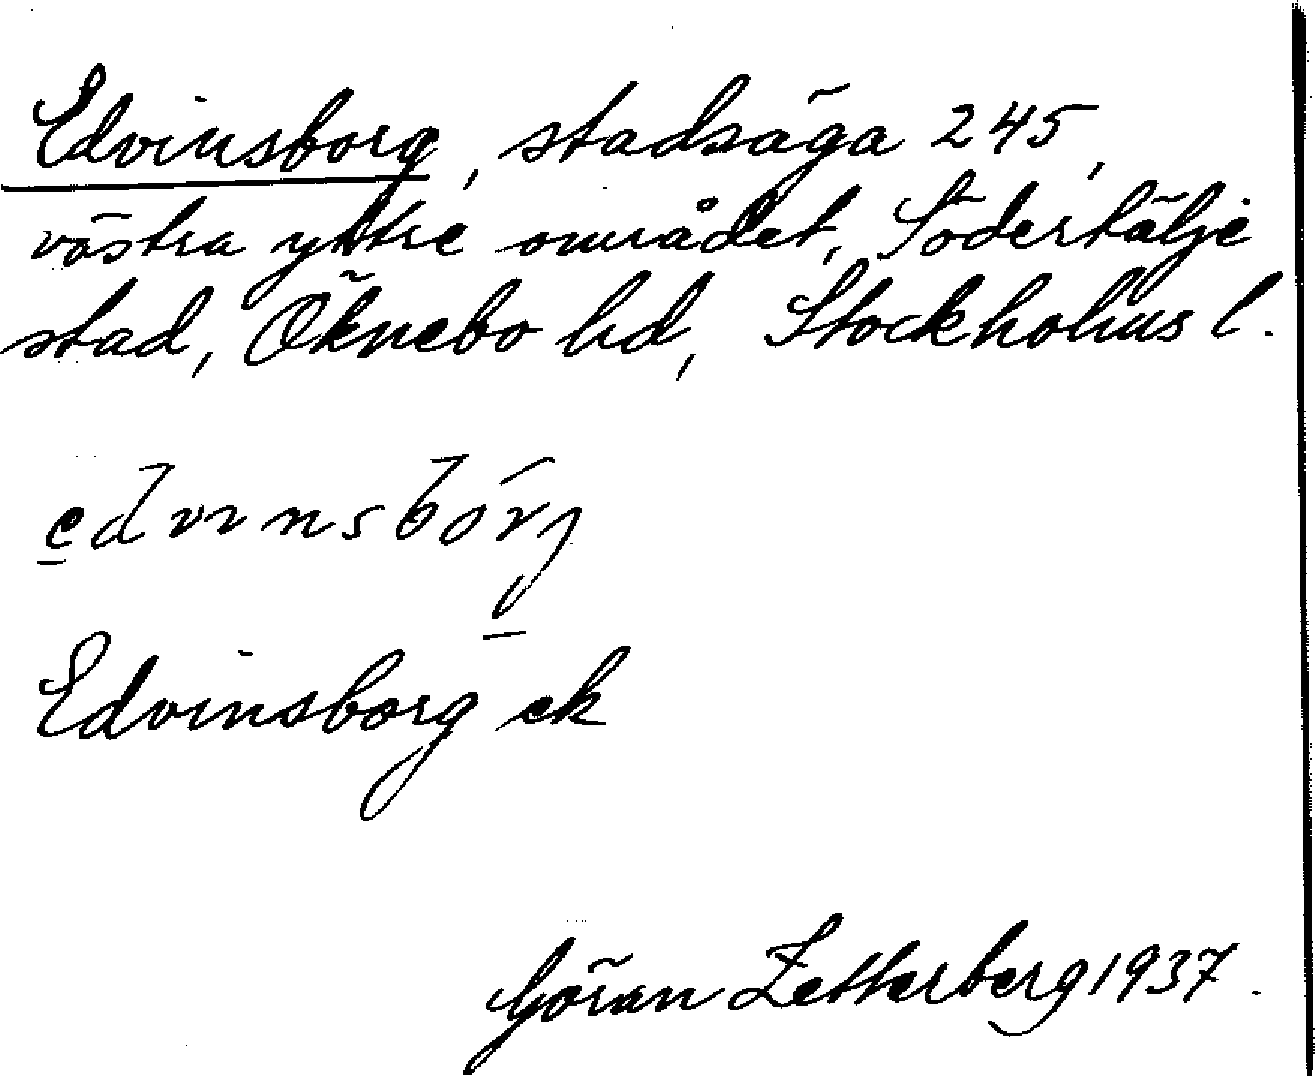 Edvinsborg, stadsäga 245,
västra yttre området, Södertälje
stad, Öknebo hd, Stockholms l.
edvinsbórj
Edvinsborg ek
Göran Zetterberg 1937.